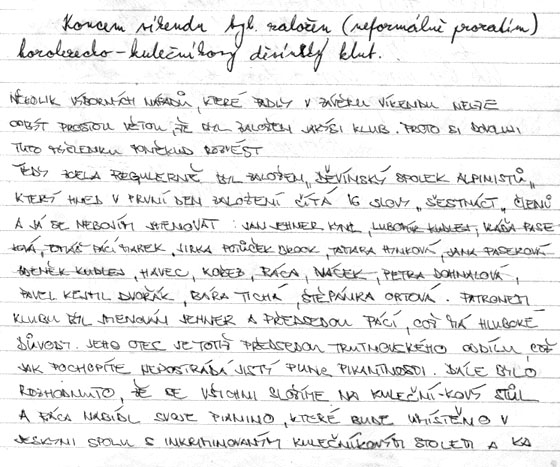 Koncem víkendu byl založen (neformálně prozatím)
horolezecko-kulečníkový děvínský klub.
NĚKOLIK VÝBORNÝCH NÁPADŮ, KTERÉ PADLY V ZÁVĚRU VÍKENDU NELZE
ODBÝT PROSTOU VĚTOU, ŽE BYL ZALOŽEN JAKÝSI KLUB. PROTO SI DOVOLUJI
TUTO MYŠLENKU PONĚKUD ROZVÉST
TEDY ZCELA REGULERNĚ BYL ZALOŽEN "DĚVÍNSKÝ SPOLEK ALPINISTŮ",
KTERÝ HNED V PRVNÍ DEN ZALOŽENÍ ČÍTÁ 16 SLOVY "ŠESTNÁCT" ČLENŮ
A JÁ SE NEBOJÍM JMENOVAT: JAN JEHNER LUBOMÍR KUDLEJ, KÁČA PASE
KOVÁ, TOMÁŠ PÁCÍ MAREK, JIRKA POTŮČEK DROCK, TAŤÁNA HYNKOVÁ, JANA PASEKOVÁ
ZDENĚK KUDLEJ, HAVEC, KOŘEB, BÁCA, VAŠEK, PETRA DOHNALOVÁ,
PAVEL DVOŘÁK, BÁRA TICHÁ, ŠTĚPÁNKA ORTOVÁ. PATRONEM
KLUBU BYL JMENOVÁN JEHNER A PŘEDSEDOU PÁCÍ, COŽ MÁ HLUBOKÉ
DŮVODY. JEHO OTEC JE TOTIŽ PŘEDSEDOU TRUTNOVSKÉHO ODDÍLU, COŽ
JAK POCHOPÍTE NEPOSTRÁDÁ JISTÝ PUNC PIKANTNOSTI. DÁLE BYLO
ROZHODNUTO, ŽE SE VŠICHNI SLOŽÍME NA KULEČNÍ-KOVÝ STŮL
A BÁCA NABÍDL SVOJE PIANINO, KTERÉ BUDE UMÍSTĚNO V
JESKYNI SPOLU S INKRIMINOVANÝM KULEČNÍKOVÝM STOLEM A KA